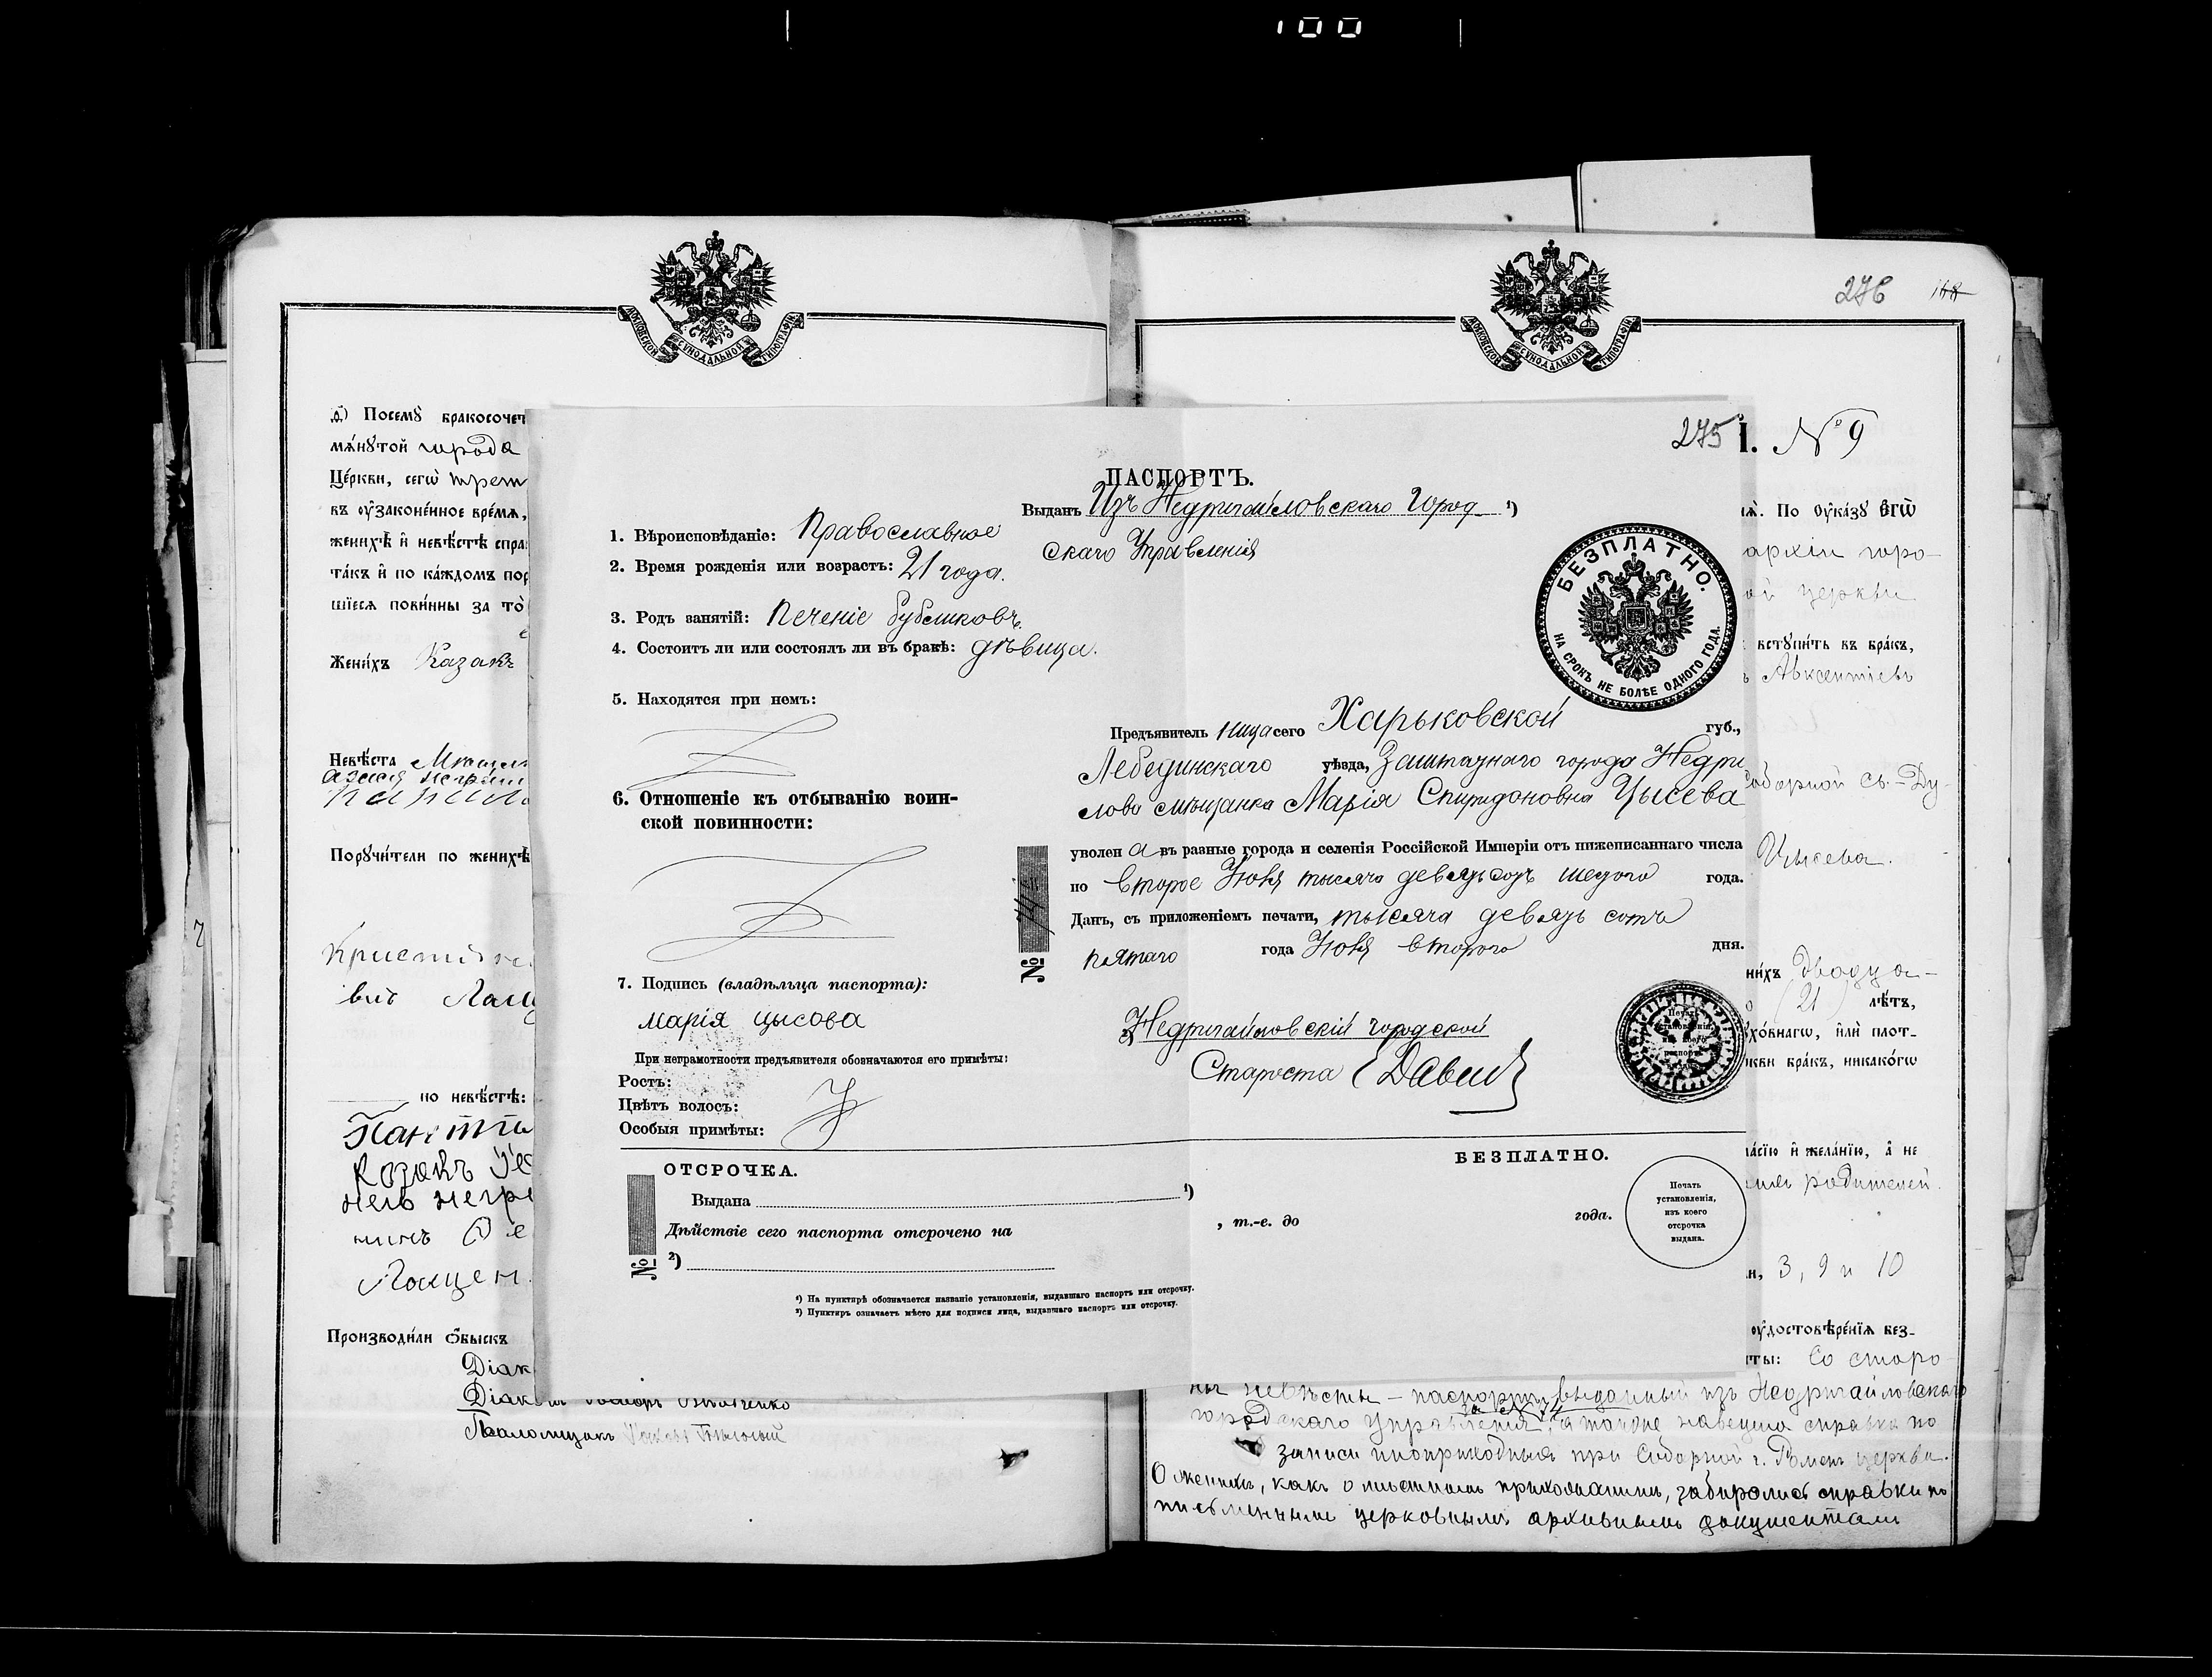 100
276 168
МОСКОВСКОЙ СУНОДАЛЬНОЙ ТИПОГРАФІИ
МОСКОВСКОЙ СУНОДАЛЬНОЙ ТИПОГРАФІИ
д҃) Посемꙋ̀ бракосочет
мѧ́нꙋтой города
Це́ркви, сегѡ̀ трет
въ ѹ҆законе́нное вре́мѧ,
женихѣ̀ и҆ невѣ́стѣ спра
та́къ и҆ по ка́ждомъ пор
шїесѧ пови́нны за то̀
Жени́хъ Казакъ
Невѣ́ста
Порꙋчи́тели по женихѣ̀
по невѣ́стѣ:
казакъ
Лащен
Производи́ли ѻ҆́быскъ
Діак
Діак
275
ПАСПОРТЪ.
Выданъ Изъ Недригайловскаго Город ¹)
скаго Управленія
1. Вѣроисповѣданіе: Православное
2. Время рожденія или возрастъ: 21 года.
3. Родъ занятій: Печеніе бубликовъ.
4. Состоитъ ли или состоялъ ли въ бракѣ: дѣвица.
5. Находятся при немъ:
6. Отношеніе къ отбыванію воин-
ской повинности:
7. Подпись (владѣльца паспорта):
марія цысова
При неграмотности предъявителя обозначаются его примѣты:
Ростъ:
Цвѣтъ волосъ:
Особыя примѣты:
БЕЗПЛАТНО.
НА СРОКЪ НЕ БОЛѢЕ ОДНОГО ГОДА.
Предъявитель ница сего Харьковской губ.,
Лебединскаго уѣзда, Заштатнаго города Недри
лова мѣщанка Марія Спиридоновна Цысева
уволен а въ разные города и селенія Россійской Имперіи отъ нижеписаннаго числа
по второе Іюня тысяча девятьсотъ шестого года.
Данъ, съ приложеніемъ печати, тысяча девять сотъ
пятаго года Іюня второго дня.
№
Недригайловскій городской
Староста
Печать установленія, изъ коего паспортъ выданъ.
ОТСРОЧКА.
БЕЗПЛАТНО.
Выдана ¹)
Дѣйствіе сего паспорта отсрочено на , т.-е. до года.
²)
№
Печать
установленія,
изъ коего
отсрочка
выдана.
¹) На пунктирѣ обозначается названіе установленія, выдавшаго паспортъ или отсрочку.
²) Пунктиръ означаетъ мѣсто для подписи лица, выдавшаго паспортъ или отсрочку.
І. № 9
По ѹ҆ка́зꙋ Е҆гѡ̀
архіи горо-
ой церкви
встꙋпи́ть въ бра́къ,
Авксентіевъ
Соборной Св.-Ду-
Цысева.
ни́хъ двадца-
(21) лѣ́тъ,
хо́внагѡ, и҆лѝ плот-
кви бра́къ, никако́гѡ
ла́сїю и҆ жела́нїю, а҆ не
родителей.
н, 3, 9 и 10
ѹ҆достовѣре́нїѧ без-
ты: Со сторо
ны невѣсты - паспортъ, выданный изъ Недригайловскаго
городского управленія, за № 74 а также наведена справка по
записи иноприходныхъ при Соборной г. Роменъ церкви.
О женихѣ, какъ о мѣстномъ прихожанинѣ, забирались справки по
письменнымъ церковнымъ архивнымъ документамъ